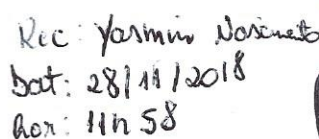 Rec: Yasmin Nascimento
Dat: 28/11/2018
hor: 11h58